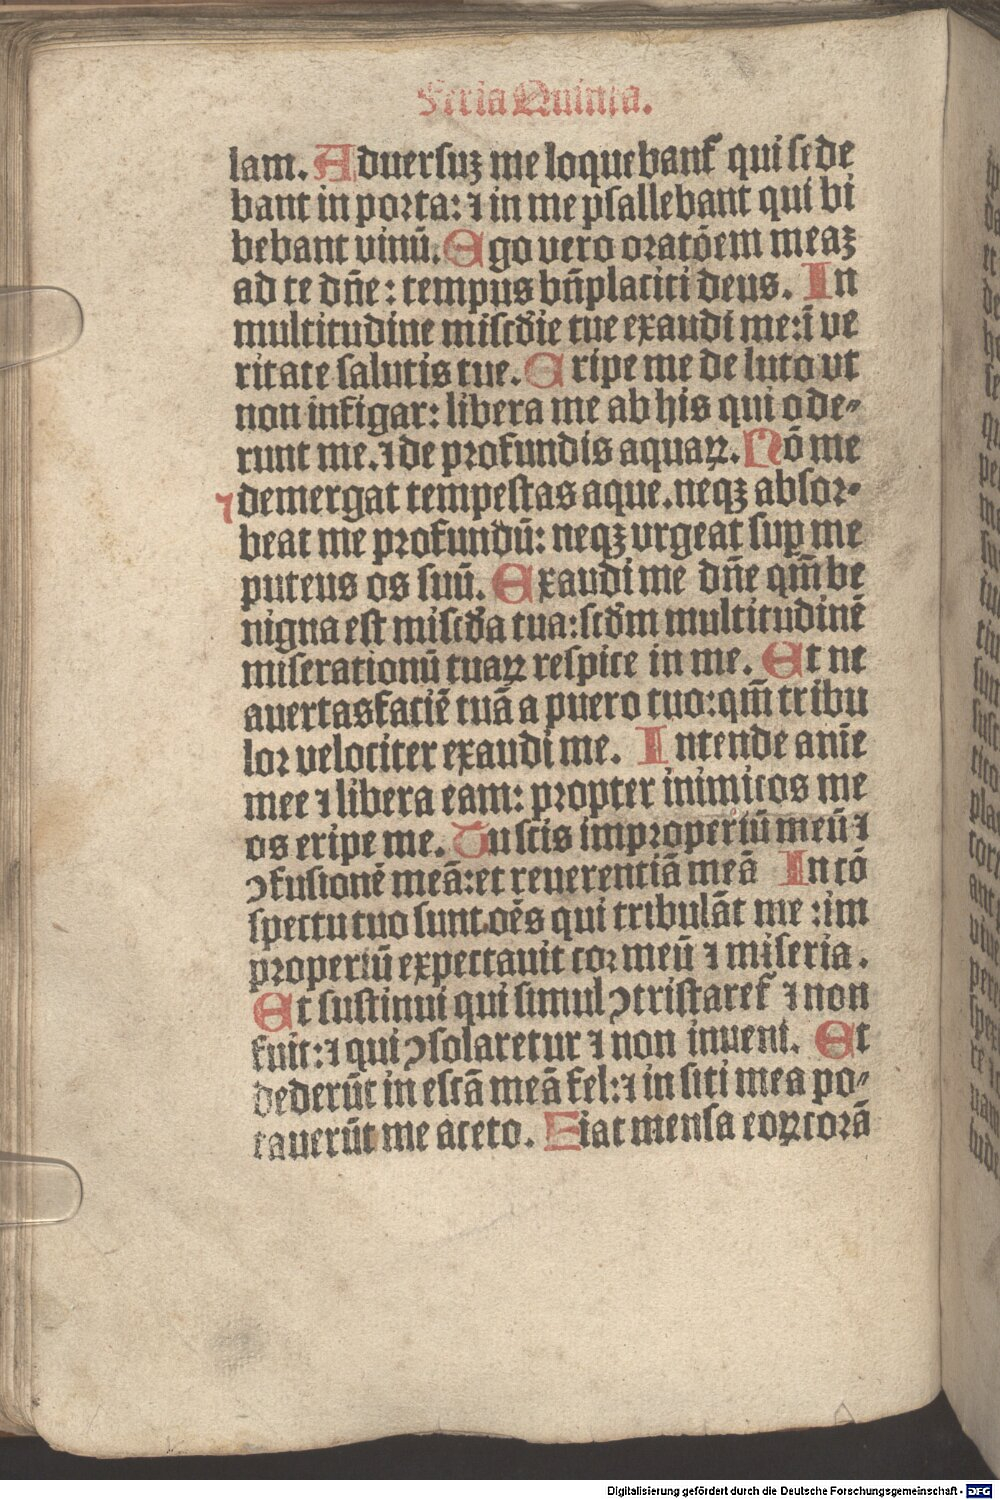 Feria Quinta.
lam. Aduersuꝫ me loquebant᷑ qui sede
bant in porta: ⁊ in me psallebant qui bi
bebant vinū. Ego vero oratōem meaꝫ
ad te dn̄e: tempus bn̄placiti deus. In
multitudine misc̄die tue exaudi me: ī ve
ritate salutis tue. Eripe me de luto vt
non infigar: libera me ab his qui ode⸗
runt me. ⁊ de profundis aquaꝝ. Nō me
demergat tempestas aque. neqꝫ absor⸗
beat me profundū: neqꝫ vrgeat suꝑ me
puteus os suū. Exaudi me dn̄e qm̄ be
nigna est misc̄da tua: scd̄m multitudinē
miserationū tuaꝝ respice in me. Et ne
auertas faciē tuā a puero tuo: qm̄ tribu
lor velociter exaudi me. Intende anīe
mee ⁊ libera eam: propter inimicos me
os eripe me. Tu scis improperiū meū ⁊
ꝯfusionē meā: et reuerentiā meā In cō
spectu tuo sunt oēs qui tribulāt me : im
properiū expectauit cor meū ⁊ miseria.
Et sustinui qui simul ꝯtristaret᷑ ⁊ non
fuit: ⁊ qui ꝯsolaretur ⁊ non inueni. Et
dederūt in escā meā fel: ⁊ in siti mea po⸗
tauerūt me aceto. Fiat mensa eoꝝ corā
Digitalisierung gefördert durch die Deutsche Forschungsgemeinschaft - DFG